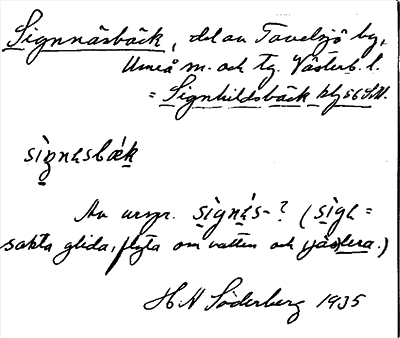 Signnäsbäck, del av Tavelsjö by,
Umeå m. och tg. Västerb. l.
= Signhildsbäck blj 56 S.M.
sìgnɩsbǽk
Av urspr. sìgnɩ́s-? (sigl =
sakta glida, flyta om vatten och
H A Söderberg 1935